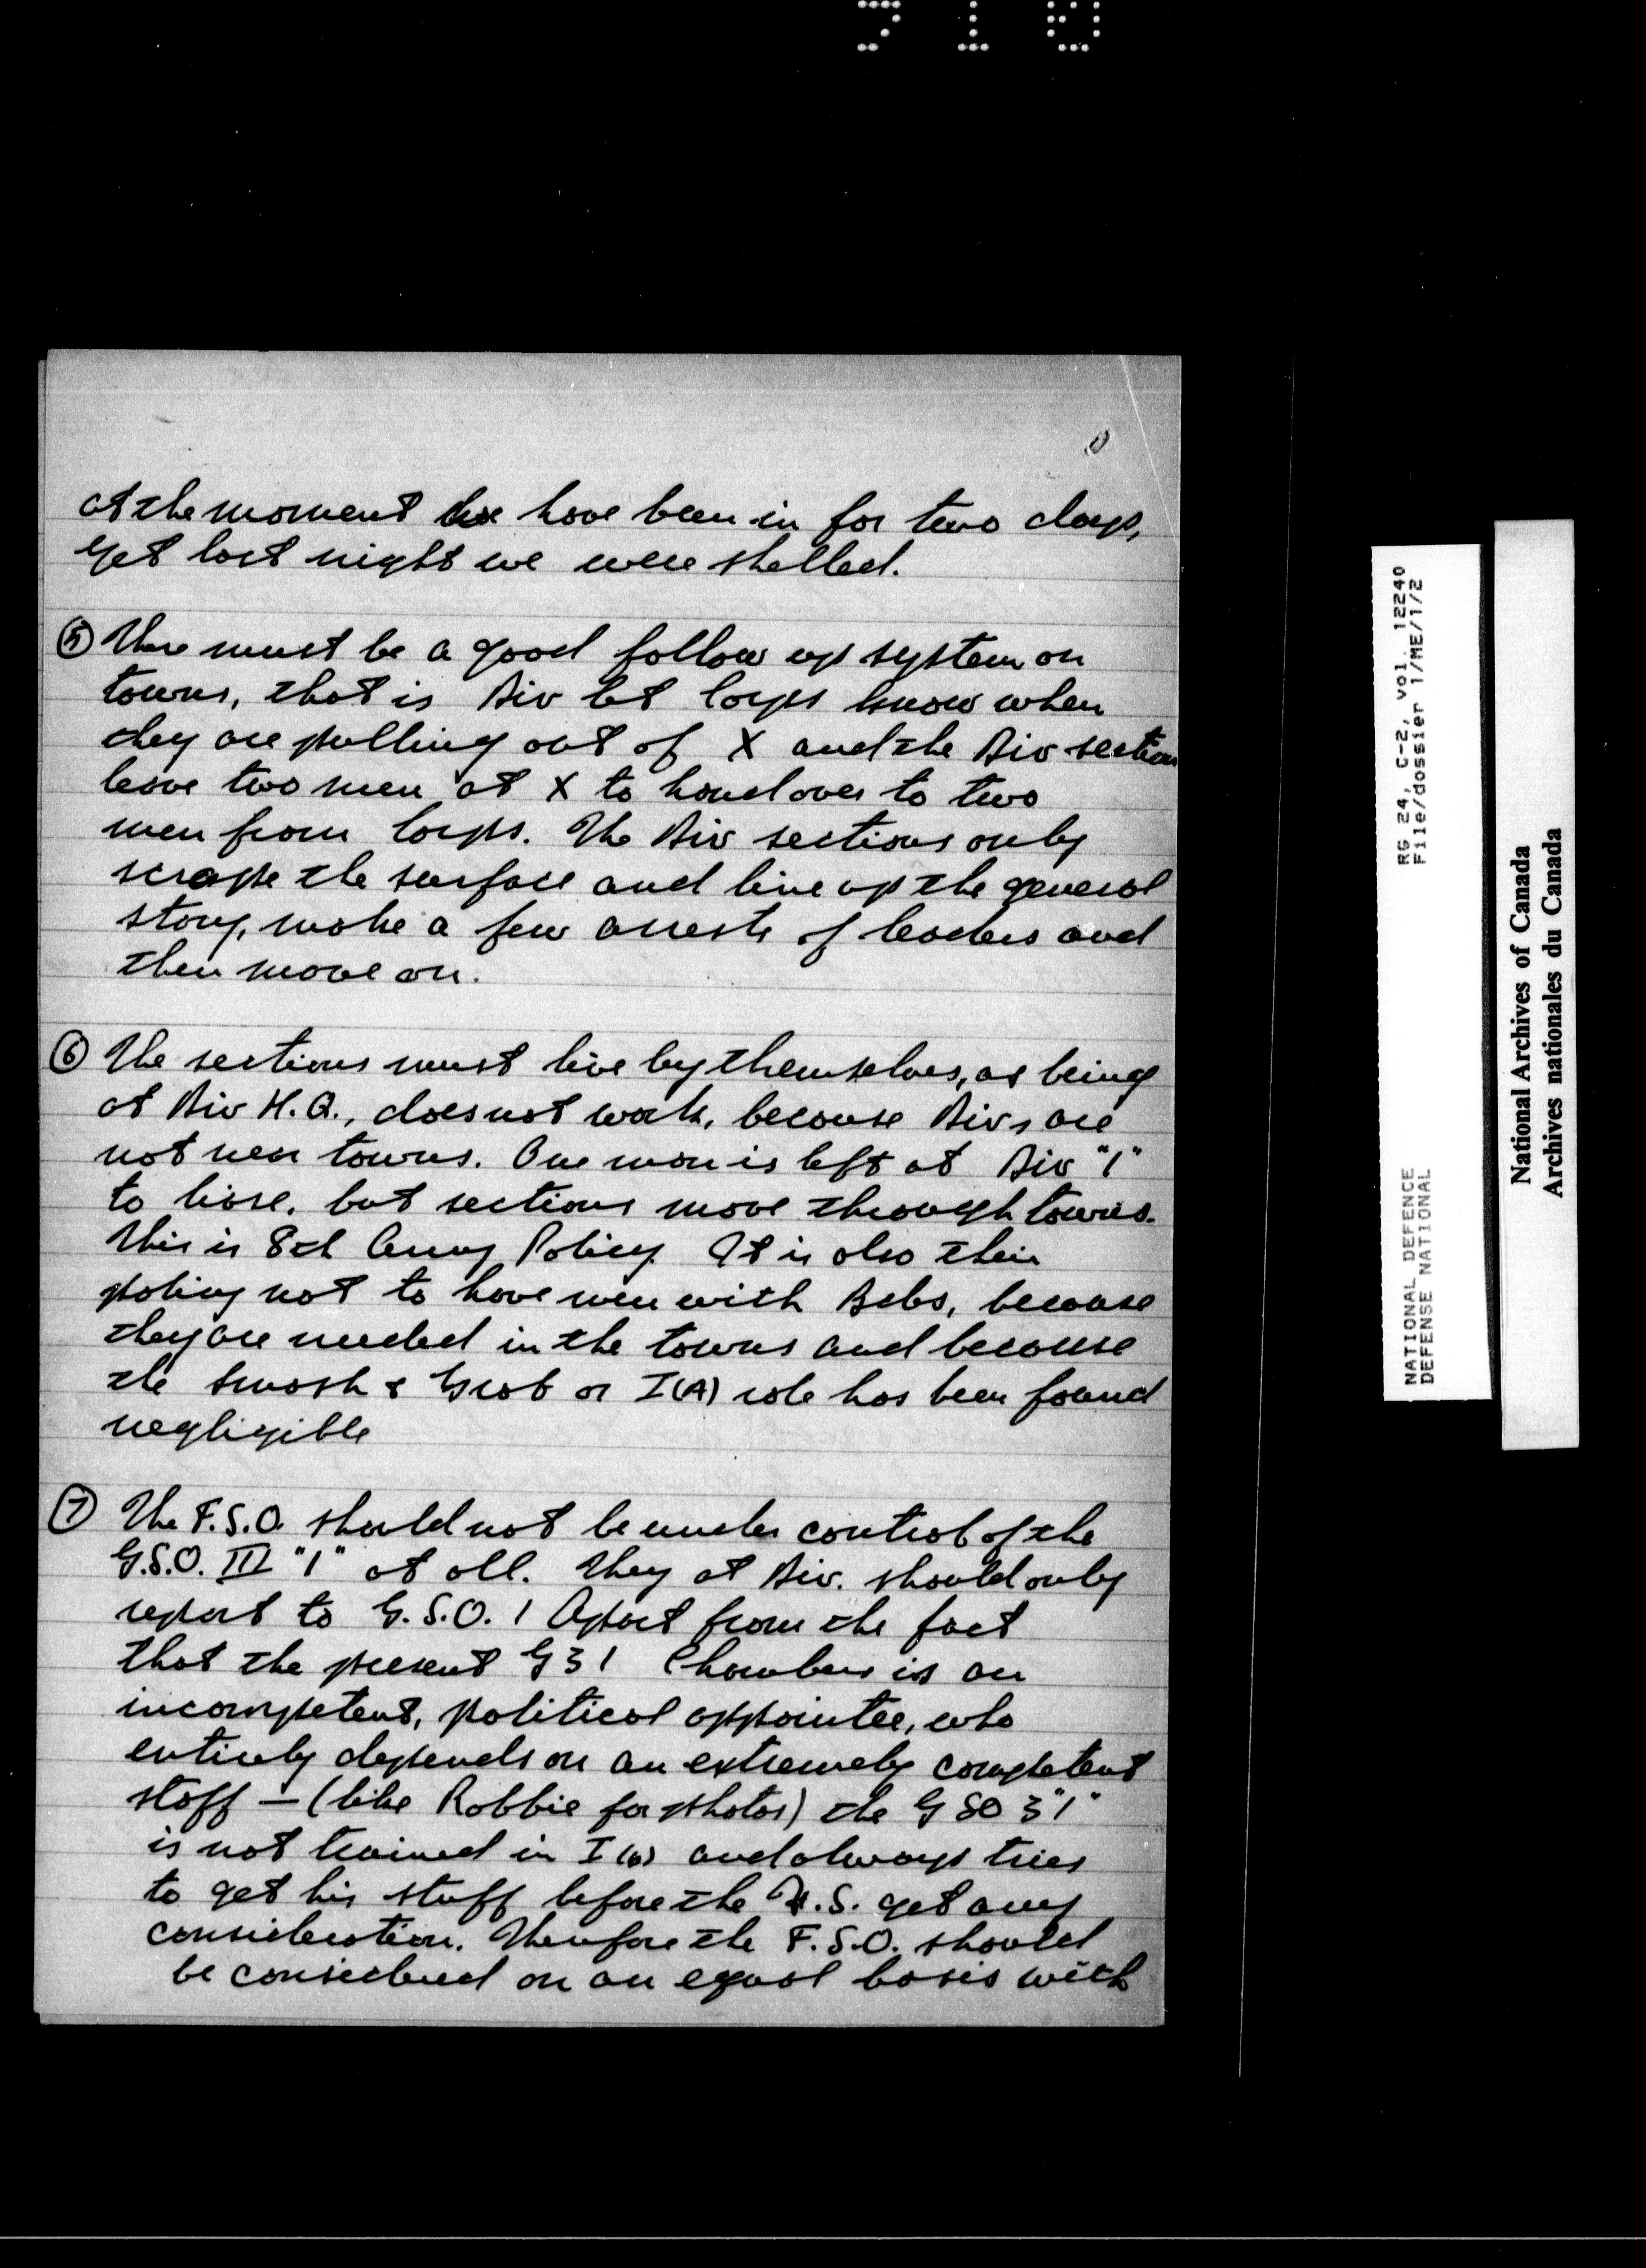 510
at the moment we have been in for two days,
yet last night we were shelled.
⑤ There must be a good follow up system on
towns, that is Div let Corps know when
they are pulling out of X and the Div section
leave two men at X to hand over to two
men from Corps. The Div sections only
scrape the surface and line up the general
story, make a few arrests of leaders and
then move on.
⑥ The sections must live by themselves, as being
at Div H.Q., does not work, because Divs are
not near towns. One man is left at Div "I"
to liase, but sections move through towns.
This is 8th Army Policy. It is also their
policy not to have men with Bdes, because
they are needed in the towns and because
the Smash & Grab or I(A) role has been found
negligible
⑦ The F.S.O. should not be under control of the
G.S.O. III "I" at all. They at Div. should only
report to G.S.O. 1 Apart from the fact
that the present G3 I Chambers is an
incompetent, political appointee, who
entirely depends on an extremely competent
staff — (like Robbie for photos) the GSO 3 "I"
is not trained in I(b) and always tries
to get his stuff before the F.S. get any
consideration. Therefore the F.S.O. should
be considered on an equal basis with
RG 24, C-2, vol. 12240
File/dossier 1/ME/1/2
NATIONAL DEFENCE
DEFENSE NATIONAL
National Archives of Canada
Archives nationales du Canada